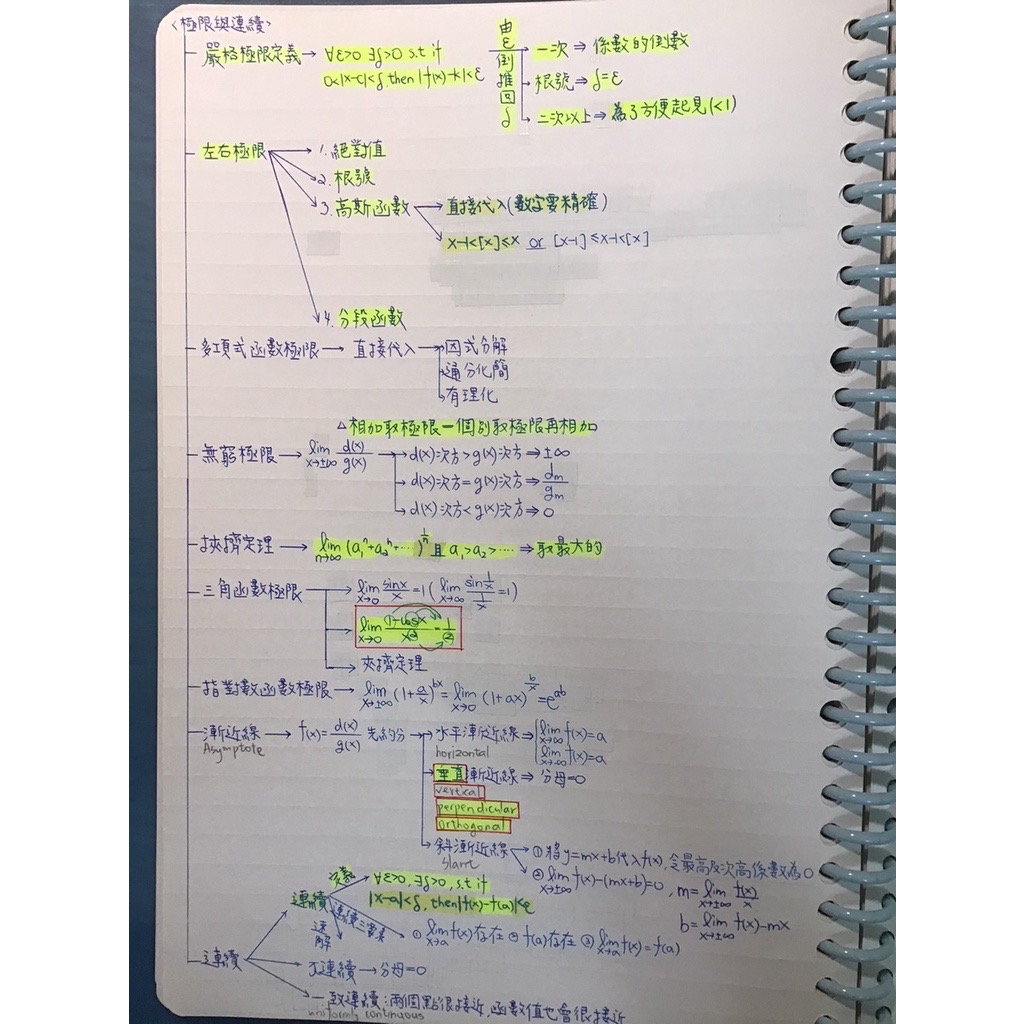 <極限與連續>
嚴格極限定義 → ∀ε>0 ∃δ>0 s.t if
0<|x-c|<δ, then |f(x)-k|<ε
由ε倒推回δ
一次 ⇒ 係數的倒數
根號 ⇒ δ=ε
二次以上 ⇒ 為了方便起見(<1)
左右極限
1. 絕對值
2. 根號
3. 高斯函數 → 直接代入(數字要精確)
x-1<[x]≤x or [x-1]≤x-1<[x]
4. 分段函數
多項式函數極限 → 直接代入 → 因式分解
通分化簡
有理化
△相加取極限=個別取極限再相加
無窮極限 → lim x→±∞ d(x)/g(x) → d(x)次方>g(x)次方 ⇒ ±∞
→ d(x)次方=g(x)次方 ⇒ dm/gm
→ d(x)次方<g(x)次方 ⇒ 0
挾擠定理 → lim n→∞ (a₁ⁿ+a₂ⁿ+‥‥)^(1/n) 且 a₁>a₂>‥‥ ⇒ 取最大的
三角函數極限 → lim x→0 sinx/x=1 (lim x→∞ sin(1/x)/(1/x)=1)
lim x→0 (1-cosx)/x²=1/2
夾擠定理
指對數函數極限 → lim x→±∞ (1+a/x)^(bx) = lim x→0 (1+ax)^(b/x) = e^(ab)
漸近線 → f(x)=d(x)/g(x) 先約分 → 水平漸近線 ⇒ lim x→∞ f(x)=a
Asymptote
horizontal
lim x→-∞ f(x)=a
垂直漸近線 ⇒ 分母=0
vertical
perpendicular
orthogonal
斜漸近線 → ① 將y=mx+b代入f(x), 令最高及次高係數為0
slant
② lim x→±∞ f(x)-(mx+b)=0, m=lim x→±∞ f(x)/x
b=lim x→±∞ f(x)-mx
連續
連續
定義
∀ε>0, ∃δ>0, s.t if
|x-a|<δ, then |f(x)-f(a)|<ε
連續三要素
① lim x→a f(x)存在 ② f(a)存在 ③ lim x→a f(x)=f(a)
不連續 → 分母=0
一致連續:兩個點很接近,函數值也會很接近
uniformly continuous